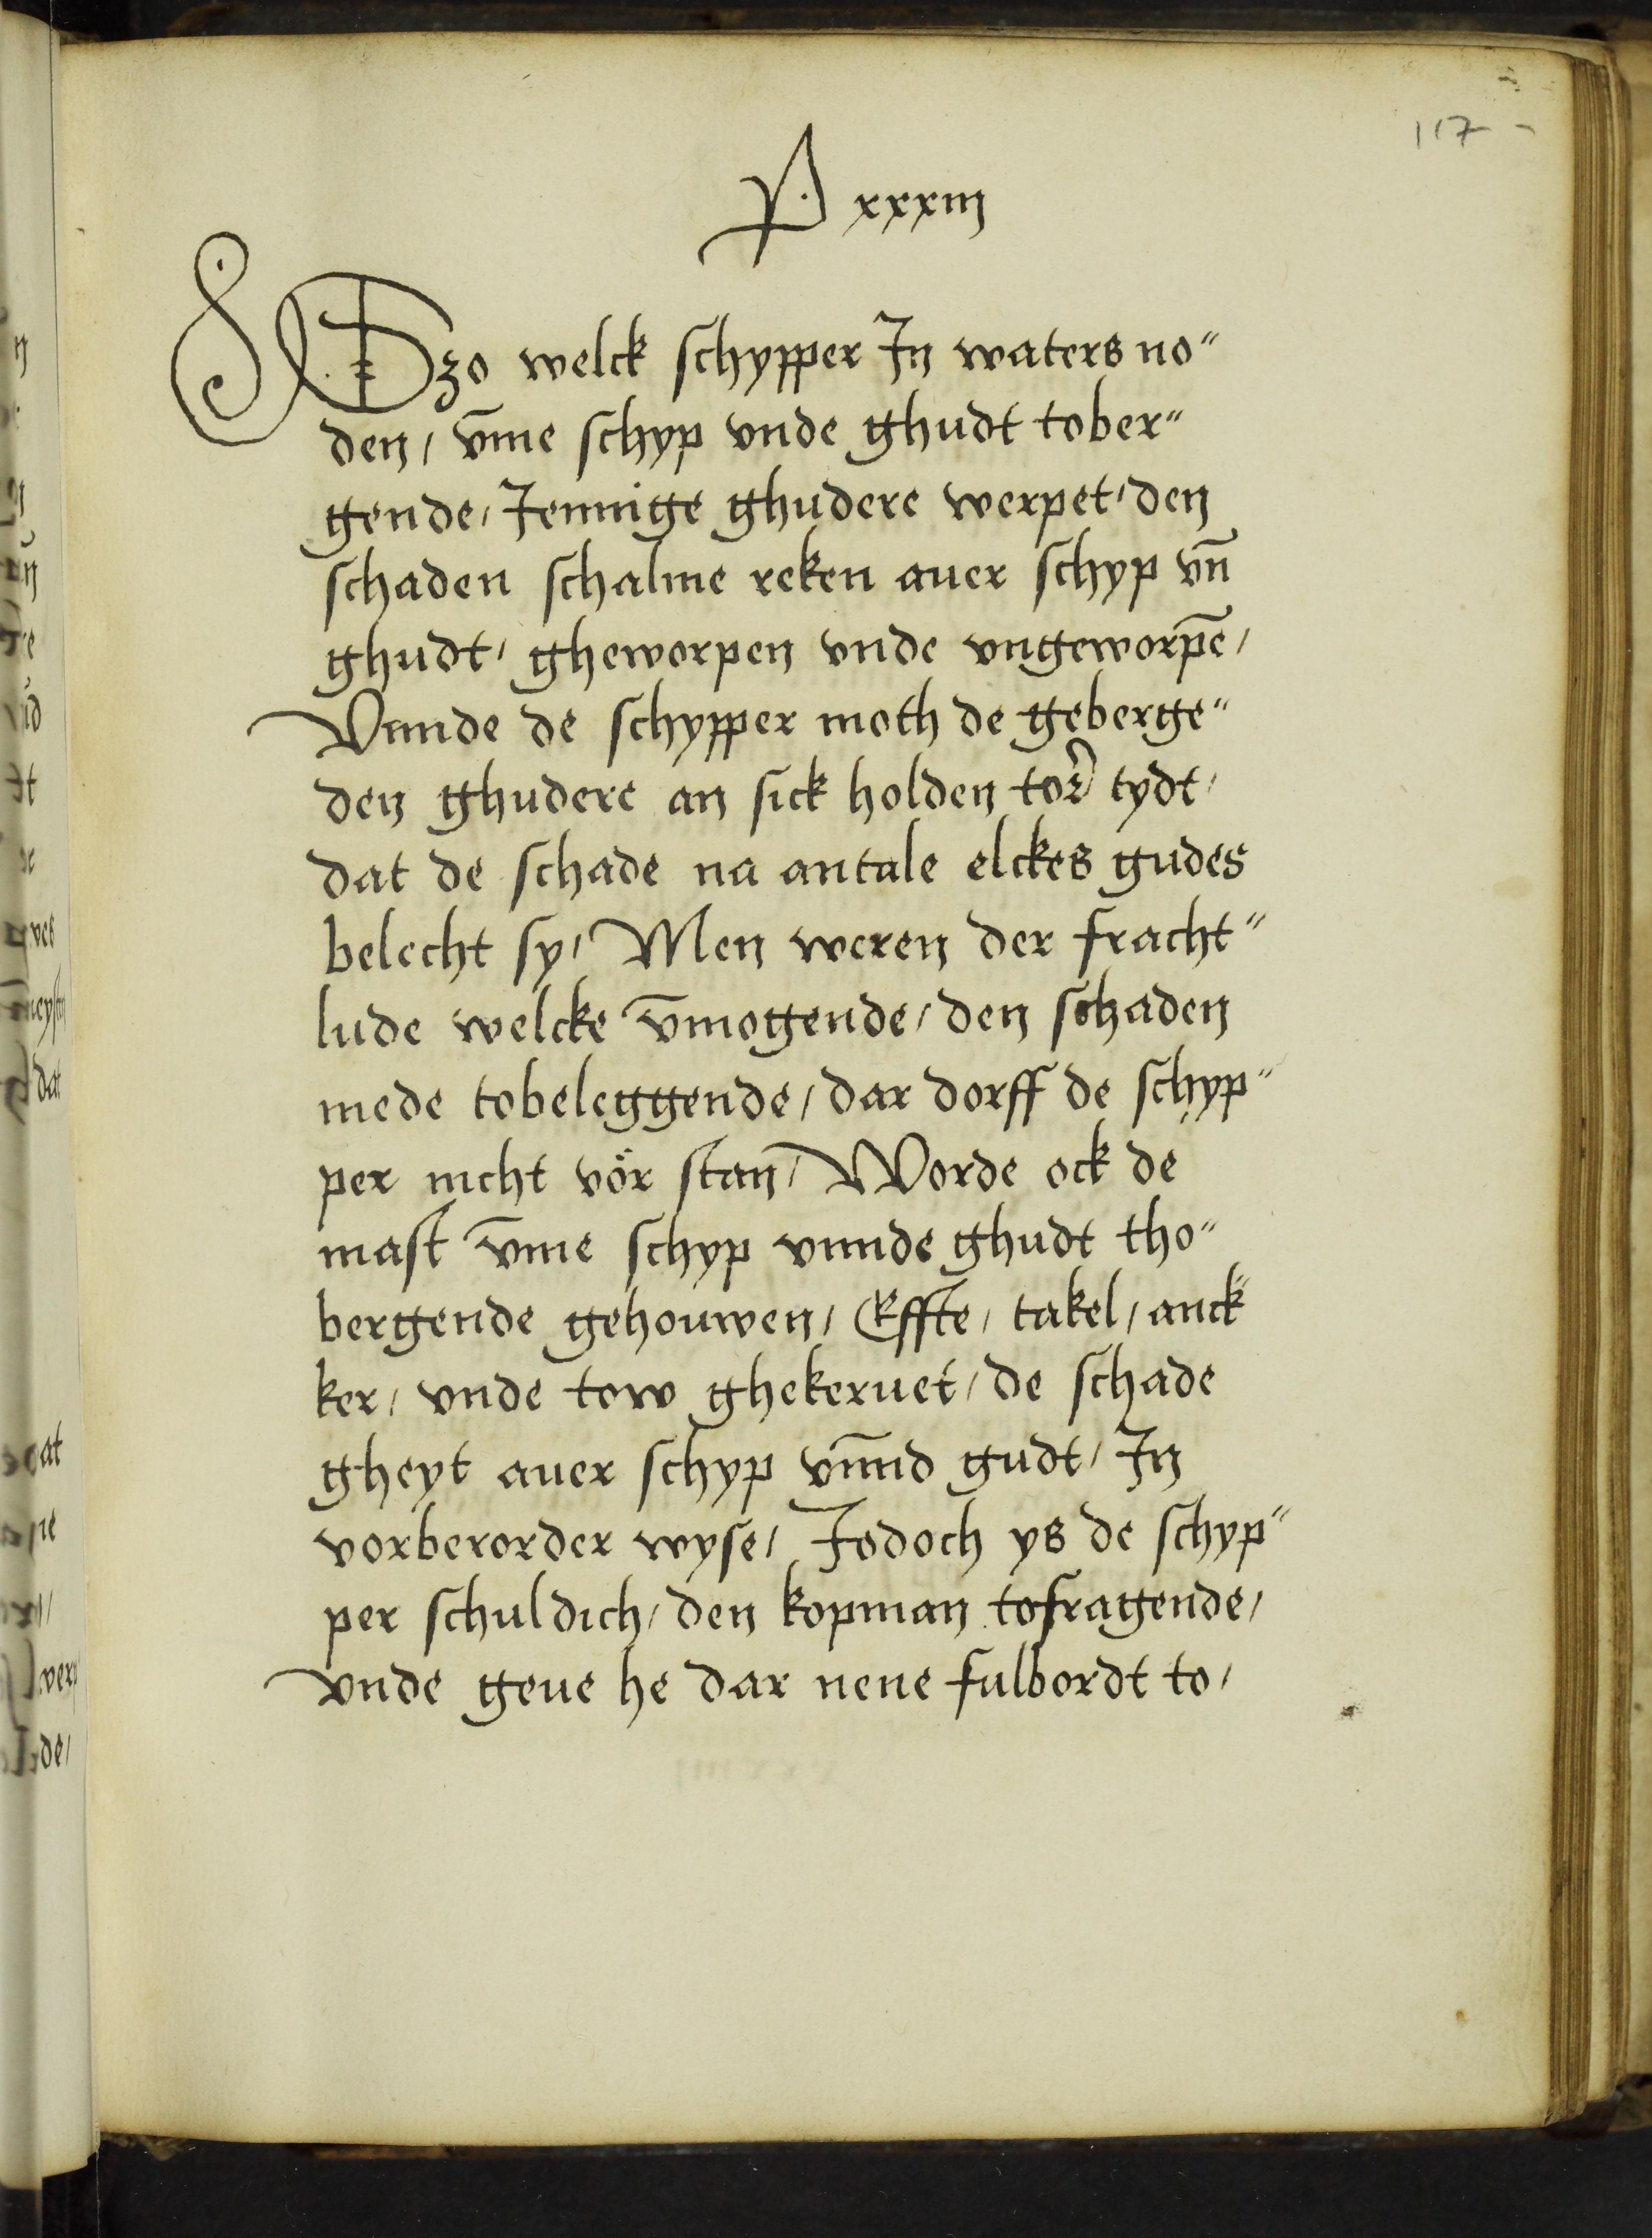 117
P xxxiij
Szo welck schypper Jn waters no"
den, v̄me schyp vnde ghudt tober"
gende, Jennige ghudere werpet, den
schaden schalme reken auer schyp vn̄
ghudt, gheworpen vnde vngeworpē,
Vnnde de schypper moth de geberge"
den ghudere an sick holden tor tydt,
dat de schade na antale elckes gudes
belecht sy, Men weren der fracht"
lude welcke v̄mogende, den schaden
mede tobeleggende, dar dorff de schyp"
per nicht vör stan, Worde ock de
mast v̄me schyp vnnde ghudt tho"
bergende gehouwen, Effte, takel, anck"
ker, vnde tow ghekeruet, de schade
gheyt auer schyp vn̄nd gudt, Jn
vorberorder wyse, Jodoch ys de schyp"
per schuldich, den kopman tofragende,
vnde geue he dar nene fulbordt to,